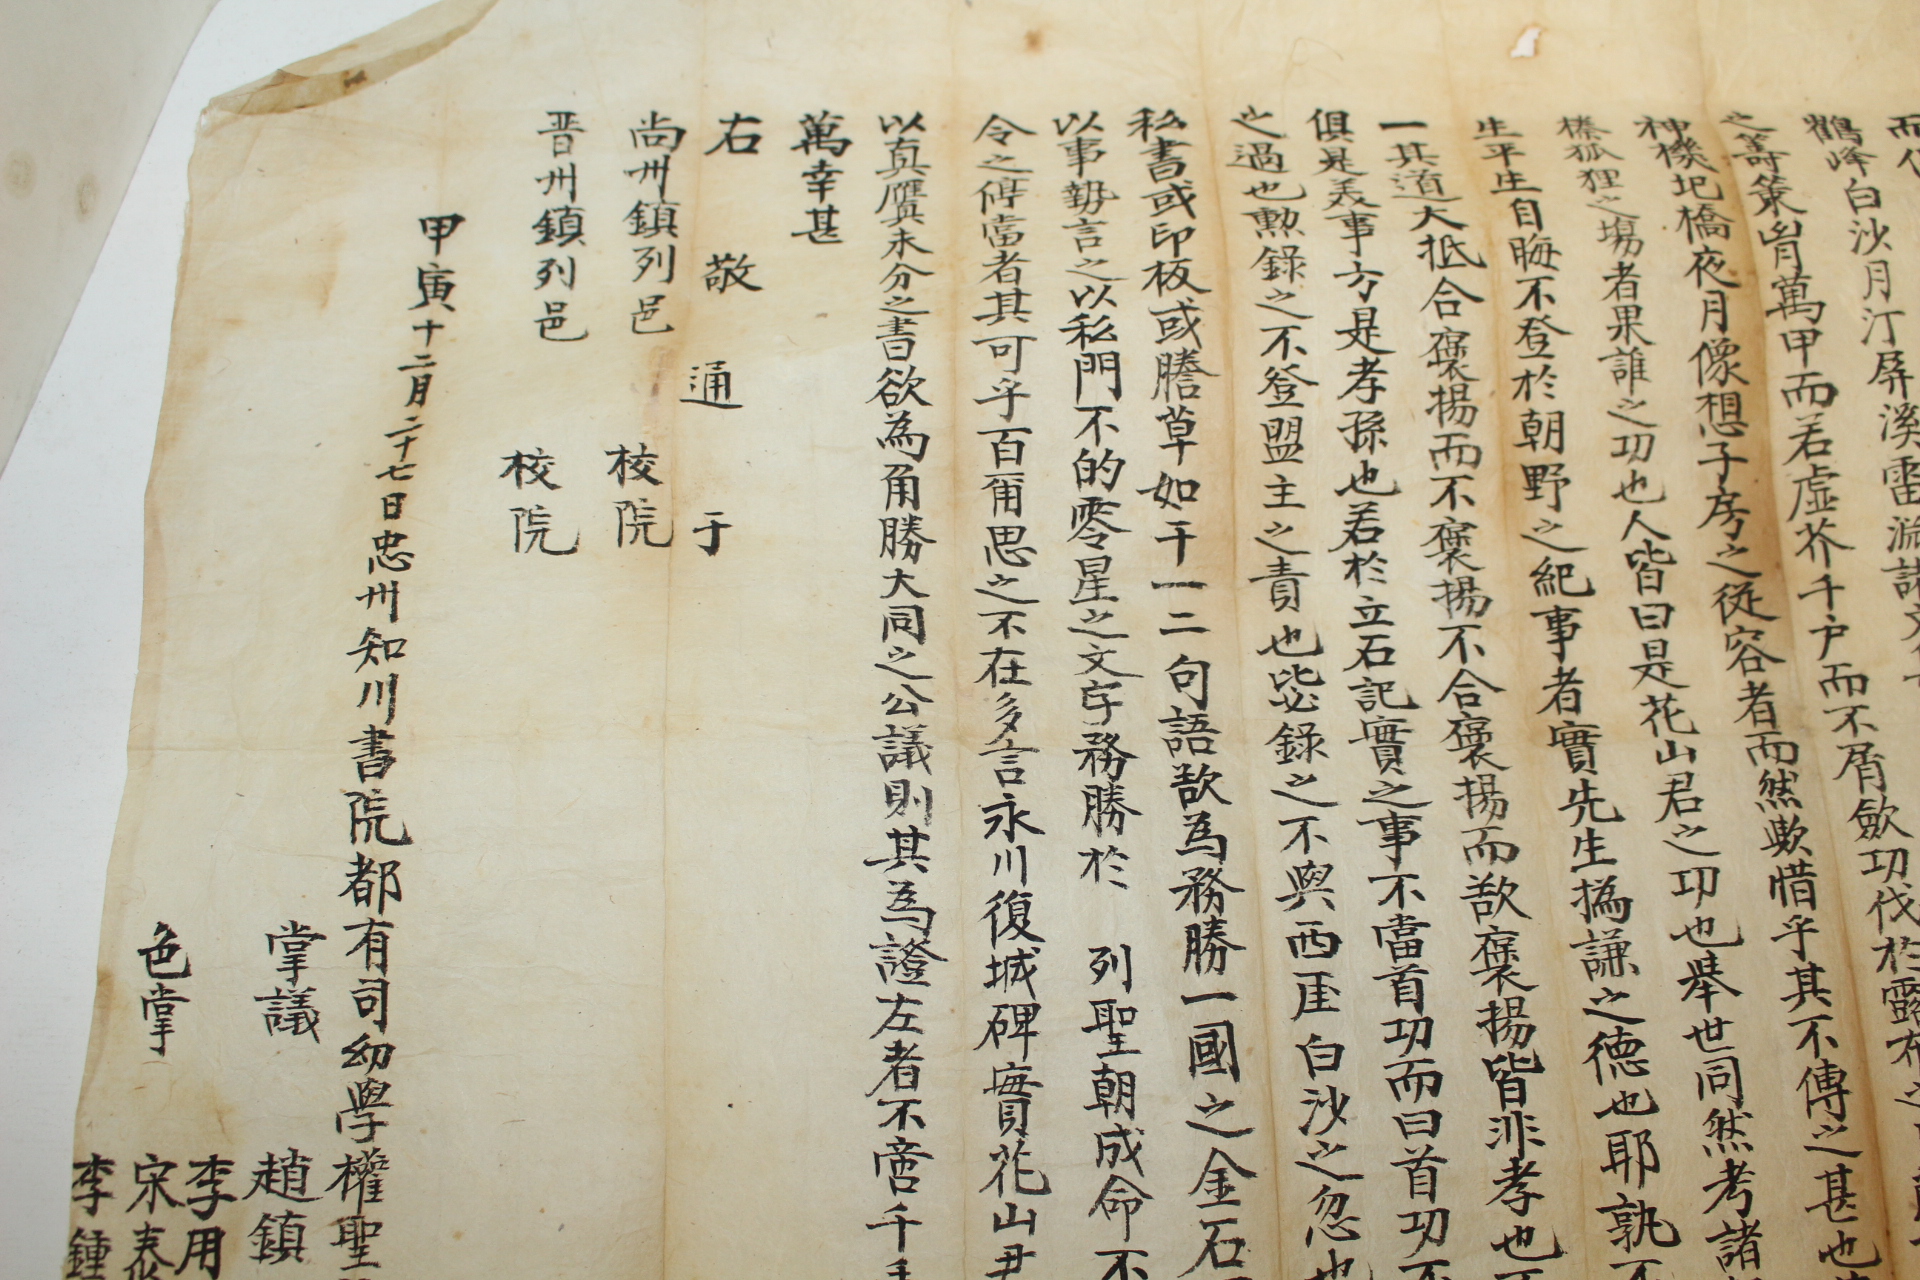 而
鶴峰白沙月汀屛溪雷淵諸文
之籌策胷萬甲而若虛芥千户而不屑斂功伐於露布之
神機圯橋夜月像想子房之從容者而然歟惜乎其不傳之甚也
榛狐狸之場者果誰之功也人皆曰是花山君之功也擧世同然考諸
生平生自晦不登於朝野之紀事者實先生撝謙之德也耶孰不
一其道大抵合褒揚而不褒揚不合褒揚而歆褒揚皆非孝也
俱是美事方是孝孫也若於立石記實之事不當首功而曰首功不
之過也勳錄之不登盟主之責也毖錄之不與西厓白沙之忽也
私書或印板或謄草如干一二句語歆為務勝一國之金石
以事勢言之以私門不的零星之文字務勝於 列聖朝成命不
令之停當者其可乎百爾思之不在多言永川復城碑實花山尹
以眞贋未分之書欲為角勝大同之公議則其為證左者不啻千
萬幸甚
右 敬 通 于
尚州鎮列邑 校院
晋州鎮列邑 校院
甲寅十二月二十七日忠州知川書院都有司幼學權聖
掌議 趙鎮
李用
色掌 宋泰
李鍾